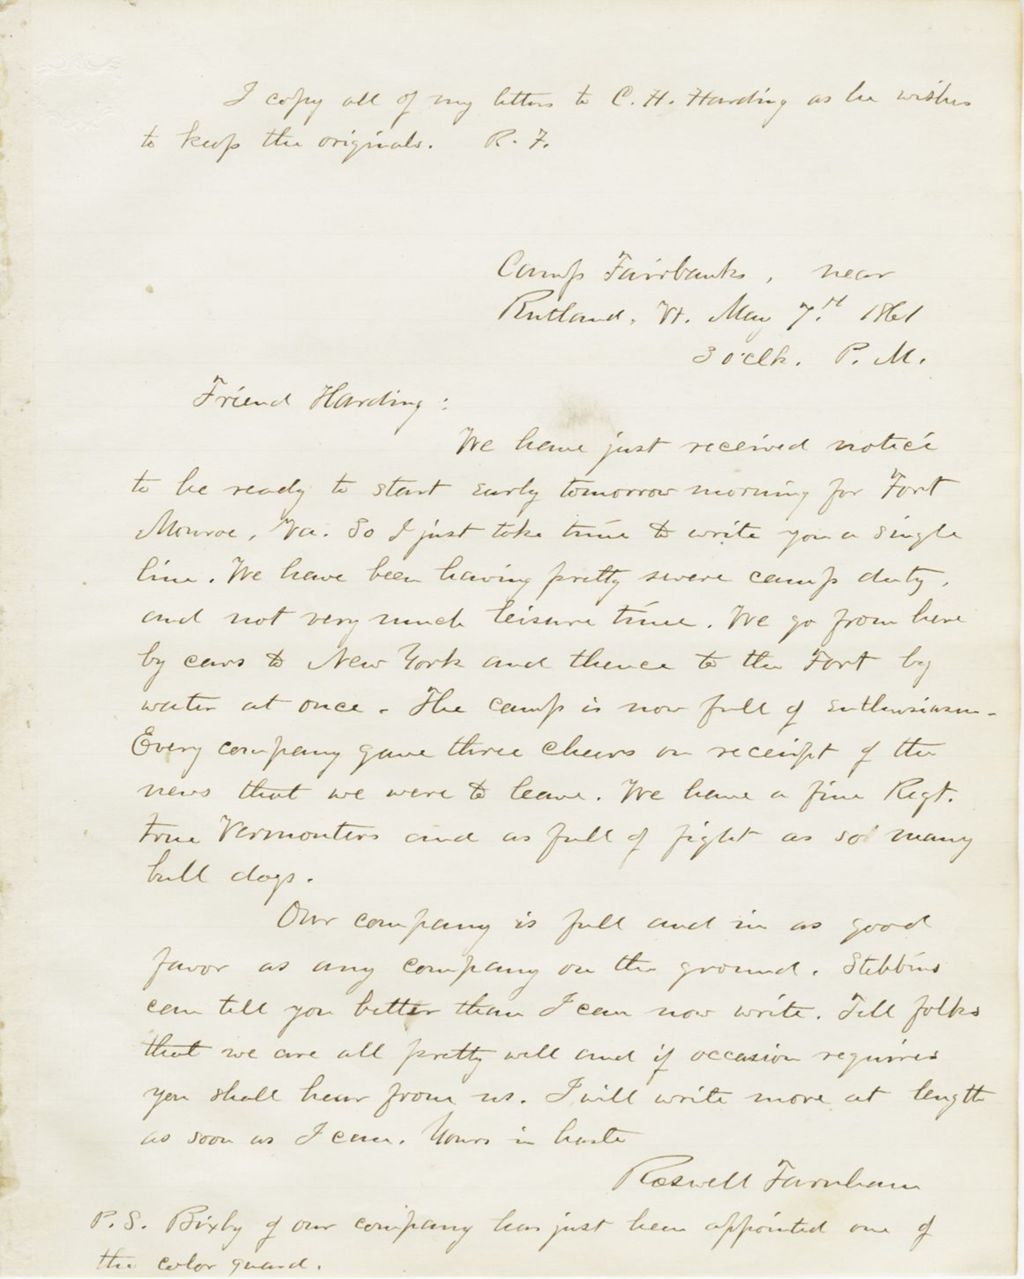 I copy all of my letters to C. H. Harding as he wishes
to keep the originals. R. F.
Camp Fairbanks, near
Rutland, Vt. May 7th 1861
3 o'clk. P. M.
Friend Harding:
We have just received notice
to be ready to start early tomorrow morning for Fort
Monroe, Va. So I just take time to write you a single
line. We have been having pretty severe camp duty,
and not very much leisure time. We go from here
by cars to New York and thence to the Fort by
water at once. The camp is now full of enthusiasm.
Every company gave three cheers on receipt of the
news that we were to leave. We have a fine Regt.
true Vermonters and as full of fight as so many
bull dogs.
Our company is full and in as good
favor as any company on the ground. Stebbins
can tell you better than I can now write. Tell folks
that we are all pretty well and if occasion requires
you shall hear from us. I will write more at length
as soon as I can. Yours in haste
Roswell Farnham
P. S. Bixby of our company has just been appointed one of
the color guard.